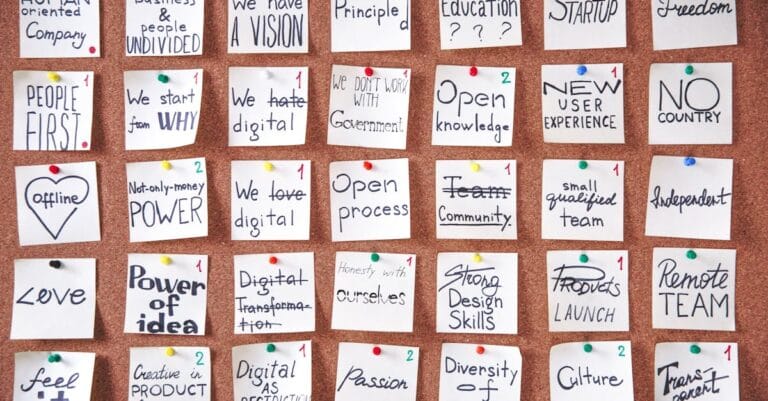 HUMAN
oriented
Company
Business
&
people
UNDIVIDED
We have
A VISION
Principled
Education
? ? ?
STARTUP
Freedom
PEOPLE
FIRST
1
We start
from WHY
1
We hate
digital
1
We DON'T WORK
WITH
Government
1
Open
knowledge
2
NEW
USER
EXPERIENCE
1
NO
COUNTRY
offline
Not-only-money
POWER
2
We love
digital
1
Open
process
Team
Community
1
small
qualified
team
1
Independent
Love
Power
of
idea
1
Digital
Transforma-
tion
1
Honesty with
ourselves
1
Strong
Design
Skills
Products
LAUNCH
1
Remote
TEAM
feel
it
Creative in
PRODUCT
2
Digital
AS
1
Passion
2
Diversity
of
Culture
2
Trans-
parent
1